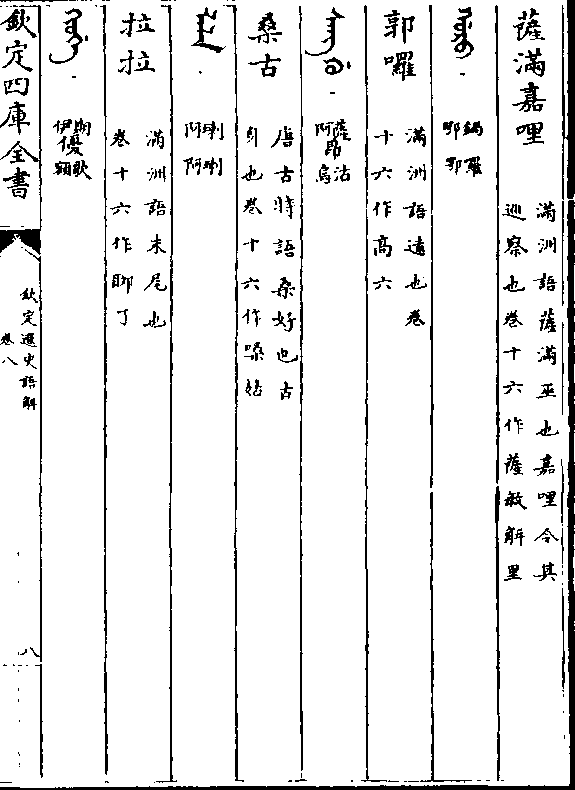 薩滿嘉哩
滿洲語薩滿巫也嘉哩令其
巡察也卷十六作薩敏解里
鍋羅
鄂鄂
郭囉
滿洲語遠也卷
十六作高六
薩沽
昂
阿烏
桑古
唐古特語桑好也古
身也卷十六作嗓姑
喇喇
阿阿
拉拉
滿洲語末尾也
卷十六作聊丁
歌
優
伊額
欽定四庫全書
欽定遼史語解
卷八
八